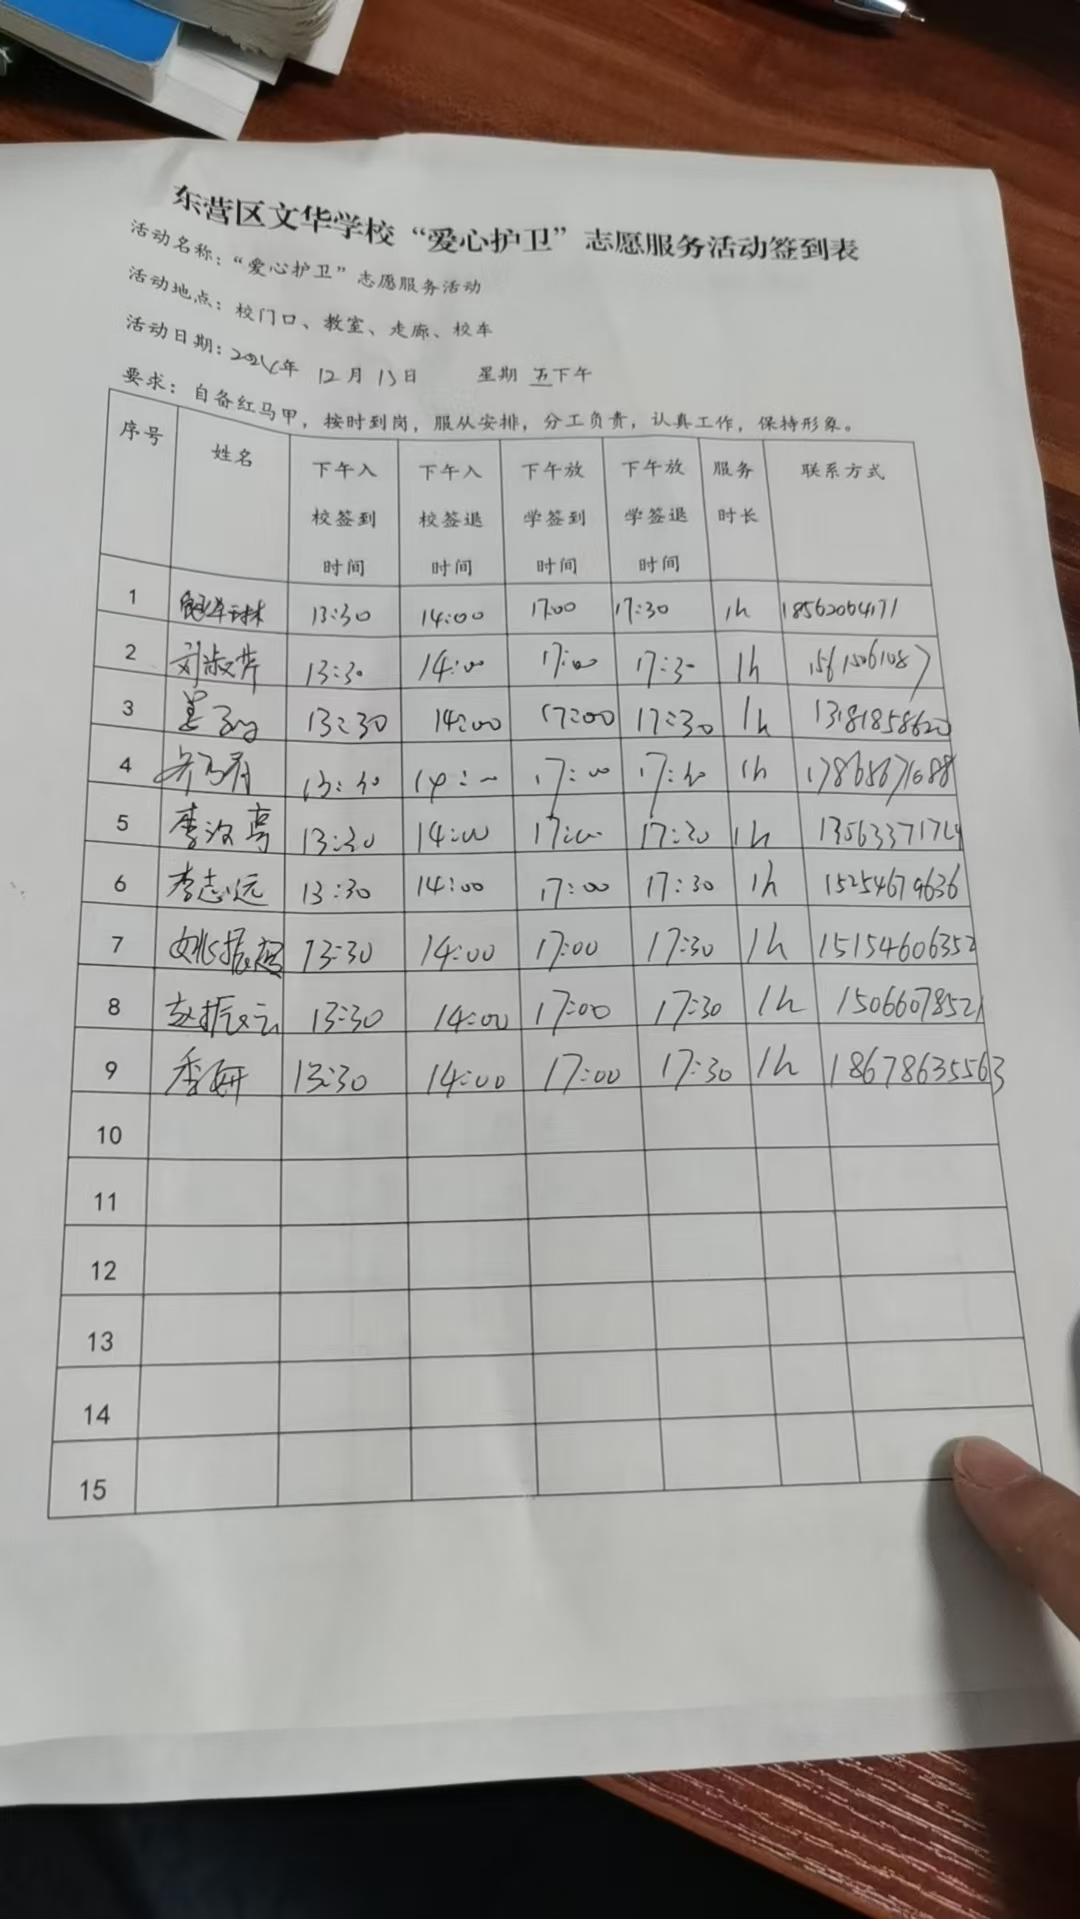 东营区文华学校“爱心护卫”志愿服务活动签到表
活动名称：“爱心护卫”志愿服务活动
活动地点：校门口、教室、走廊、校车
活动日期：2024年 12月13日 星期 五下午
要求：自备红马甲，按时到岗，服从安排，分工负责，认真工作，保持形象。
序号 姓名 下午入校签到时间 下午入校签退时间 下午放学签到时间 下午放学签退时间 服务时长 联系方式
1 13:30 14:00 17:00 17:30 1h 18562064171
2 刘淑芹 13:30 14:00 17:00 17:30 1h 15615061087
3 姜 13:30 14:00 17:00 17:30 1h 13181858620
4 13:30 14:00 17:00 17:30 1h 17865671688
5 李 13:30 14:00 17:00 17:30 1h
6 李志远 13:30 14:00 17:00 17:30 1h 15254679636
7 姚振超 13:30 14:00 17:00 17:30 1h 15154606352
8 赵振云 13:30 14:00 17:00 17:30 1h 15066078521
9 季妍 13:30 14:00 17:00 17:30 1h 18678635563
10
11
12
13
14
15